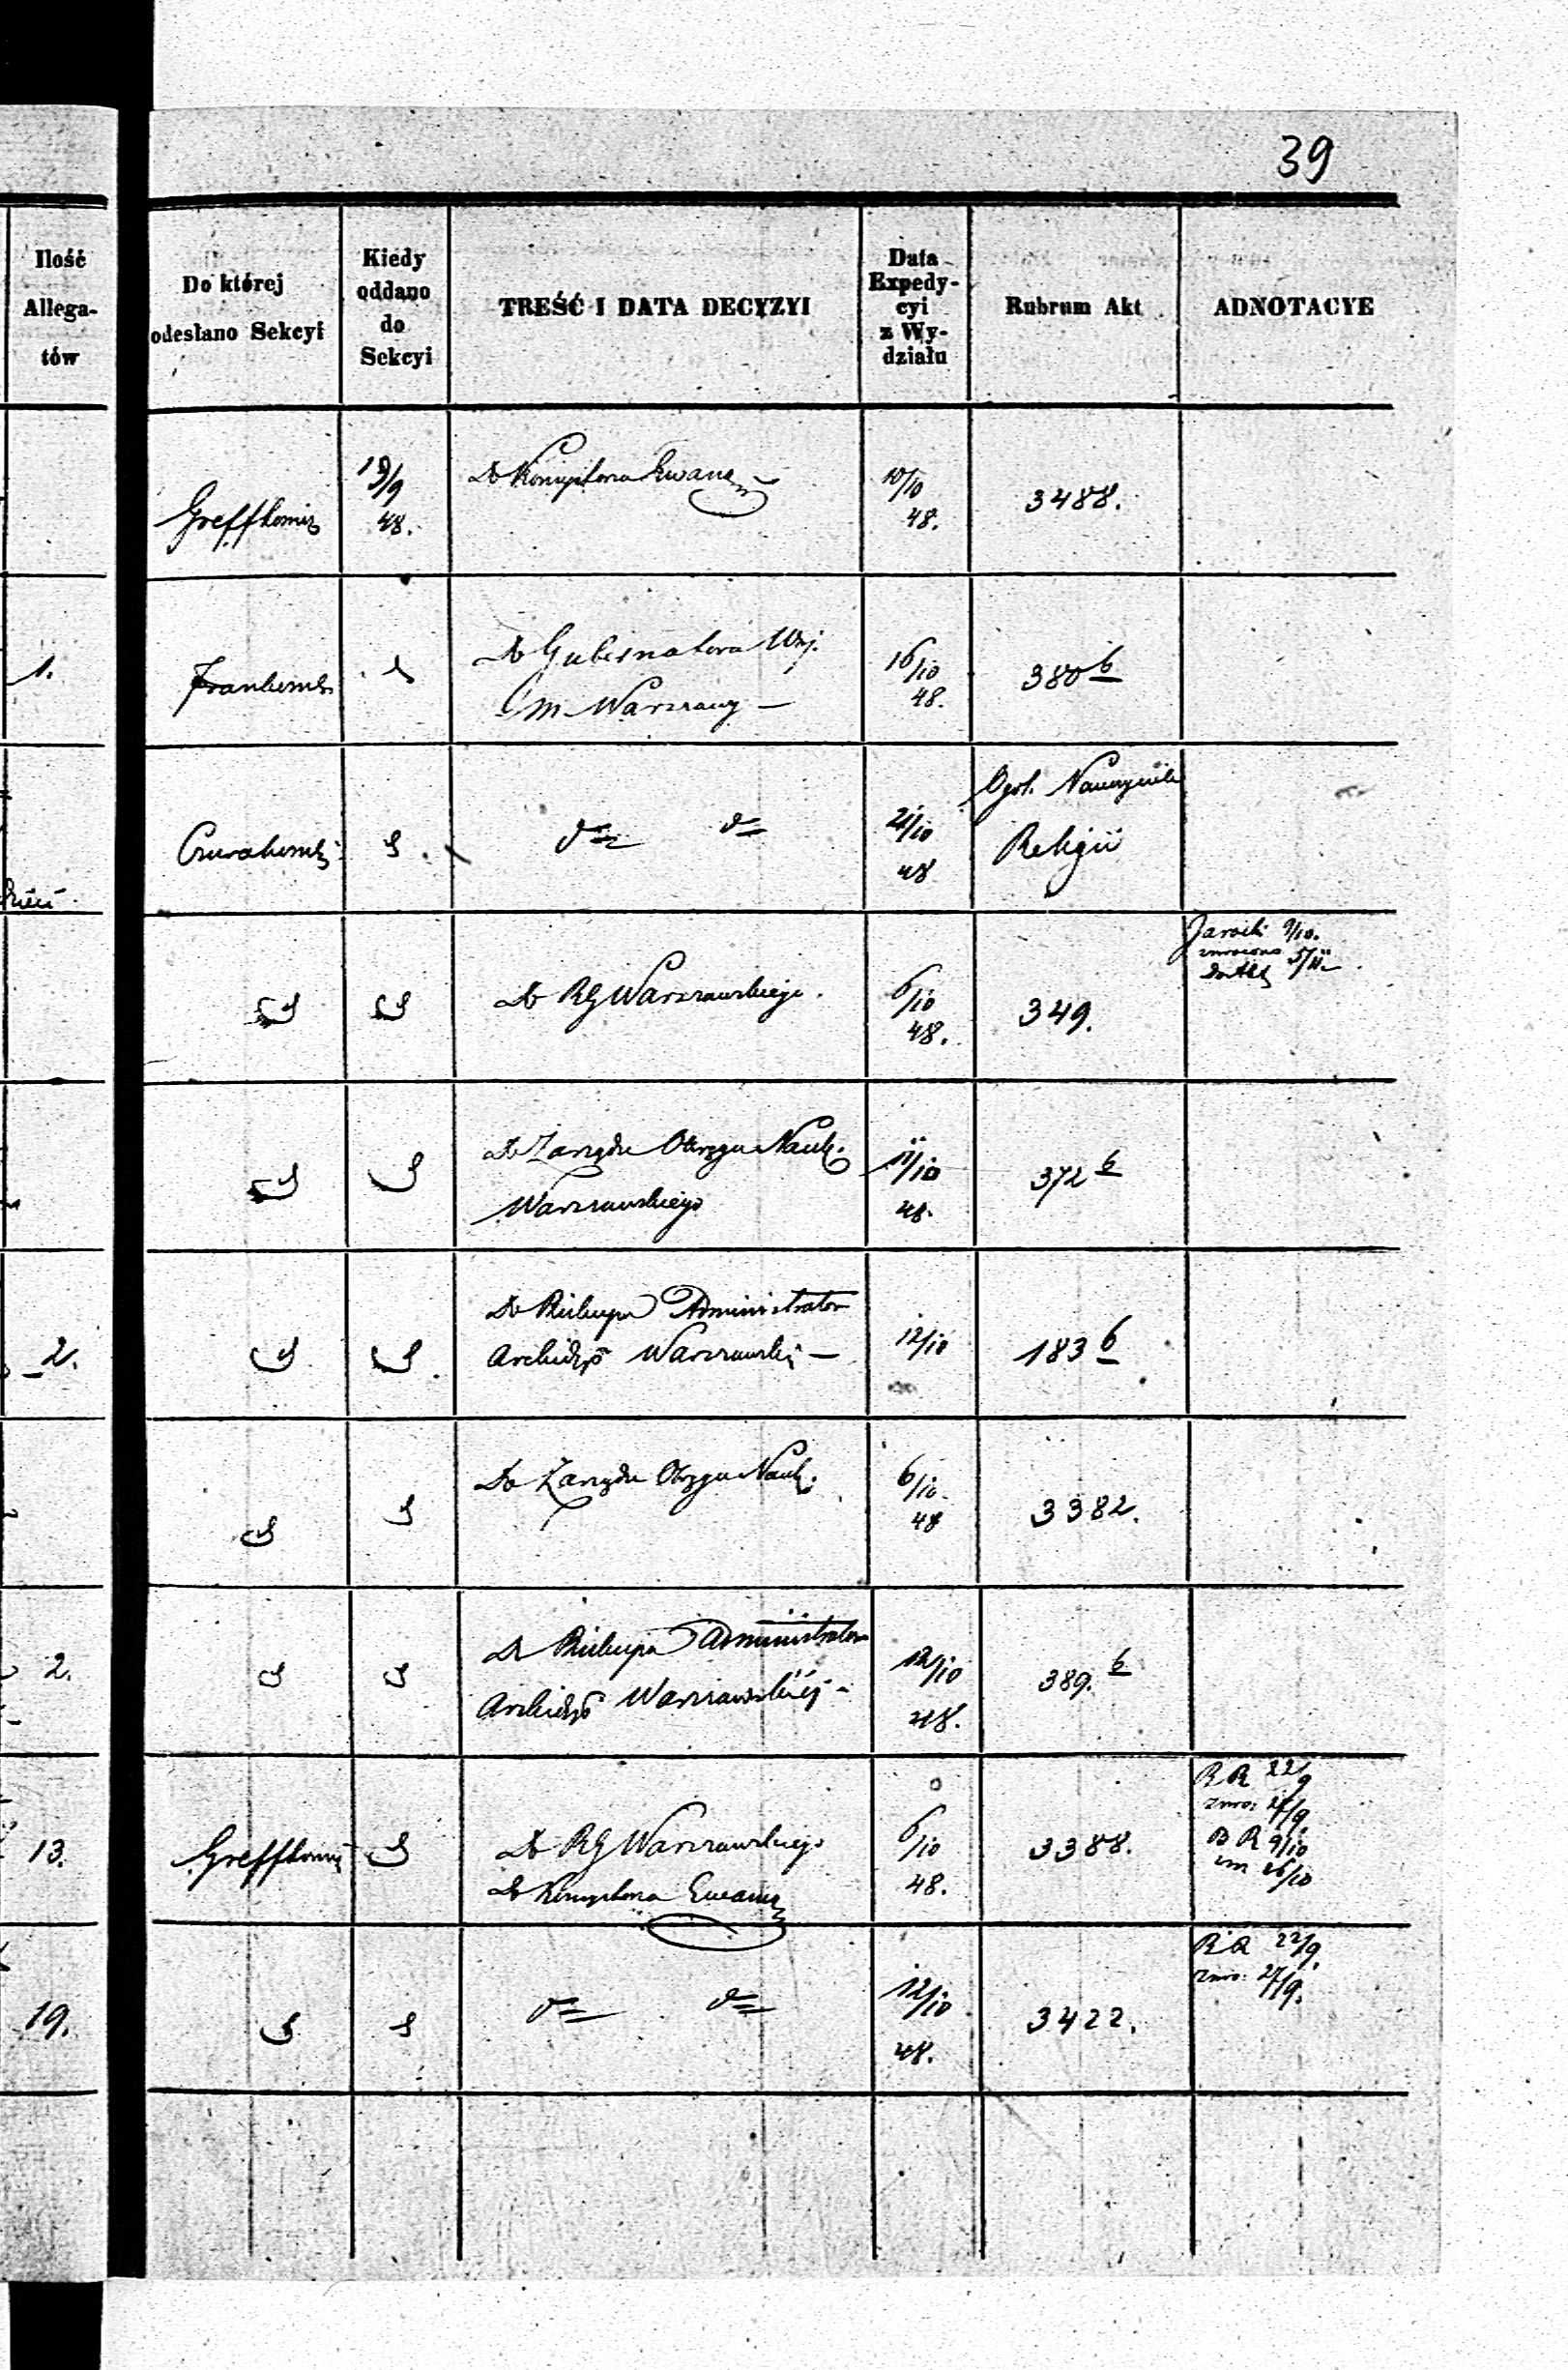 39
Ilość
Allega-
tów
Do której
odesłano Sekcyi
Kiedy
oddano
do
Sekcyi
TREŚĆ I DATA DECYZYI
Data
Expedy-
cyi
z Wy-
działu
Rubrum Akt
ADNOTACYE
19/9
48.
Do Konsystorza Ewang
10/10
48.
3488.
1.
Do Gubernatora Woj.
m Warszawy —
16/10
48.
380 b
21/10
48
Religii
Do RG Warszawskiego.
6/10
48.
349.
Jarocki 9/10.
zwrócono 5/11
Do Zarządu Okręgu Nauk.
Warszawskiego
11/10
48.
372 b
2.
Do Biskupa Administrator
Archidyo Warszawskiej —
12/10
183 b
Do Zarządu Okręgu Nauk.
6/10
48
3382.
2.
Do Biskupa Administratora
Archidyo Warszawskiej -
12/10
48.
389. b
13.
Do RG Warszawskiego
Do Konsystorza Ewang
6/10
48.
3388.
RR 22/9
zwro: 27/9.
RR 9/10
26/10
19.
12/10
48.
3422.
RR 22/9.
zwro: 27/9.